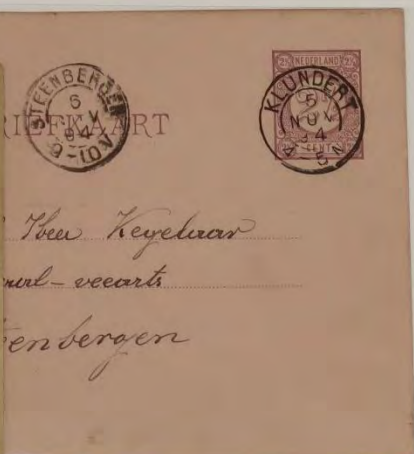 NEDERLAND
2½ 2½
CENT
KLUNDERT
5
NOV
94
4-5N
STEENBERGEN
6
NOV
94
9-10V
RIEFKAART
Heer Kegelaar
veearts
enbergen